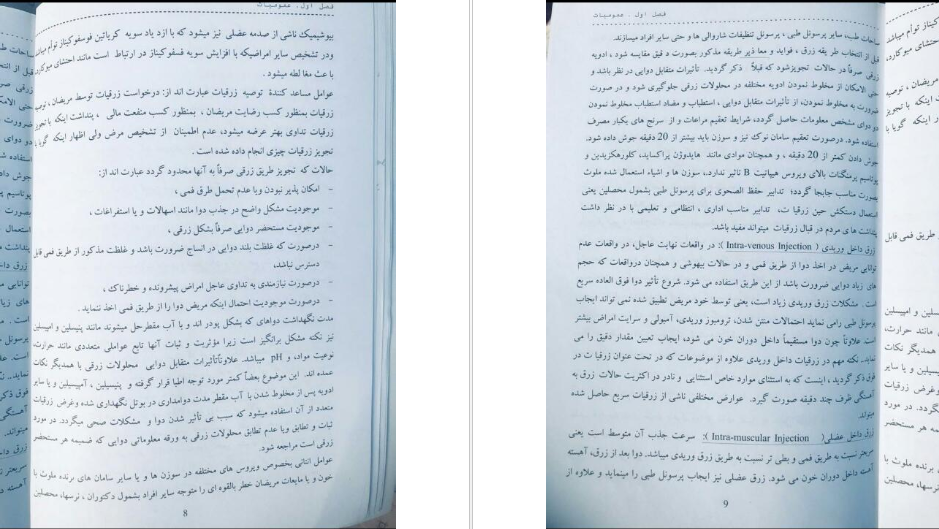 فصل اول . عمومیات
بیوشیمیک ناشی از صدمه عضلی نیز میشود که با ازد یاد سویه کریاتین فوسفوکیناز توأم میباشد
ودر تشخیص سایر امراضیکه با افزایش سویه فسفوکیناز در ارتباط است مانند احتشای میوکارد،
با عث مغا لطه میشود .
عوامل مساعد کنندۀ توصیه زرقیات عبارت اند از: درخواست زرقیات توسط مریضان ، توصیه
زرقیات بمنظور کسب رضایت مریضان ، بمنظور کسب منفعت مالی ، یا پنداشت اینکه با تجویز
زرقیات تداوی بهتر عرضه میشود، عدم اطمینان از تشخیص مرض ولی اظهار اینکه گویا با
تجویز زرقیات چیزی انجام داده شده است .
حالات که تجویز طریق زرقی صرفاً به آنها محدود گردد عبارت اند از:
- امکان پذیر نبودن ویا عدم تحمل طرق فمی ،
- موجودیت مشکل واضح در جذب دوا مانند اسهالات و یا استفراغات ،
- موجودیت مستحضر دوایی صرفاً بشکل زرقی ،
- درصورت که غلظت بلند دوایی در انساج ضرورت باشد و غلظت مذکور از طریق فمی قابل
دسترس نباشد،
- درصورت نیازمندی به تداوی عاجل امراض پیشرونده و خطرناک ،
- درصورت موجودیت احتمال اینکه مریض دوا را از طریق فمی اخذ ننماید .
مدت نگهداشت دواهای که بشکل پودر اند و با آب مقطر حل میشوند مانند پنسیلین و امپسیلین
نیز نکته مشکل برانگیز است زیرا مؤثریت و ثبات آنها تابع عواملی متعددی مانند حرارت،
نوعیت مواد، و pH میباشد. علاوتاً تأثیرات متقابل دوایی محلولات زرقی با همدیگر نکات
عمده اند. این موضوع بعضاً کمتر مورد توجه اطبا قرار گرفته و پنیسلین ، آمپیسیلین و یا سایر
ادویه پس از مخلوط شدن با آب مقطر مدت دوامداری در بوتل نگهداری شده وغرض زرقیات
متعدد از آن استفاده میشود که سبب بی تأثیر شدن دوا و مشکلات صحی میگردد. در مورد
ثبات و تطابق ویا عدم تطابق محلولات زرقی به ورقه معلوماتی دوایی که ضمیمه هر مستحضر
زرقی است مراجعه شود.
عوامل انتانی بخصوص ویروس های مختلفه در سوزن ها و یا سایر سامان های برنده ملوث با
خون و یا مایعات مریضان خطر بالقوه ای را متوجه سایر افراد بشمول دکتوران ، نرسها، محصلین
8
فصل اول . عمومیات
طب، سایر پرسونل طبی ، پرسونل تنظیفات شاروالی ها و حتی سایر افراد میسازند.
قبل از انتخاب طر یقه زرق ، فواید و معا ذیر طریقه مذکور بصورت د قیق مقایسه شود ، ادویه
زرقی صرفاً در حالات تجویز شود که قبلاً ذکر گردید. تأثیرات متقابل دوایی در نظر باشد و
حتی الامکان از مخلوط نمودن ادویه مختلفه در محلولات زرقی جلوگیری شود و در صورت
ضرورت به مخلوط نمودن، از تأثیرات متقابل دوایی ، استطباب و مضاد استطباب مخلوط نمودن
دو دوای مشخص معلومات حاصل گردد، شرایط تعقیم مراعات و از سرنج های یکبار مصرف
استفاده شود. درصورت تعقیم سامان نوک تیز و سوزن باید بیشتر از 20 دقیقه جوش داده شود.
جوش دادن کمتر از 20 دقیقه ، و همچنان موادی مانند هایدروژن پراکساید، کلورهکزیدین و
پوتاسیم پرمنگنات بالای ویروس هیپاتیت B تاثیر ندارد، سوزن ها و اشیاء استعمال شده ملوث
بصورت مناسب جابجا گردد؛ تدابیر حفظ الصحوی برای پرسونل طبی بشمول محصلین یعنی
استعمال دستکش حین زرقیا ت، تدابیر مناسب اداری ، انتظامی و تعلیمی با در نظر داشت
پنداشت های مردم در قبال زرقیات میتواند مفید باشد.
زرق داخل وریدی ( Intra-venous Injection ): در واقعات نهایت عاجل، در واقعات عدم
توانایی مریض در اخذ دوا از طریق فمی و در حالات بیهوشی و همچنان درواقعات که حجم
های زیاد دوایی ضرورت باشد از این طریق استفاده می شود. شروع تأثیر دوا فوق العاده سریع
است . مشکلات زرق وریدی زیاد است، یعنی توسط خود مریض تطبیق شده نمی تواند ایجاب
پرسونل طبی رامی نماید احتمالات منتن شدن، ترومبوز وریدی، آمبولی و سرایت امراض بیشتر
است علاوتاً چون دوا مستقیماً داخل دوران خون می شود، ایجاب تعیین مقدار دقیق را می
نماید. نکته مهم در زرقیات داخل وریدی علاوه از موضوعات که در تحت عنوان زرقیا ت در
فوق ذکر گردید ، اینست که به استثنای موارد خاص استثنایی و نادر در اکثریت حالات زرق به
آهستگی ظرف چند دقیقه صورت گیرد. عوارض مختلفی ناشی از زرقیات سریع حاصل شده
میتواند.
زرق داخل عضلی( Intra-muscular Injection ): سرعت جذب آن متوسط است یعنی
سریعتر نسبت به طریق فمی و بطی تر نسبت به طریق زرق وریدی میباشد. دوا بعد از زرق، آهسته
آهسته داخل دوران خون می شود. زرق عضلی نیز ایجاب پرسونل طبی را مینماید و علاوه از
9